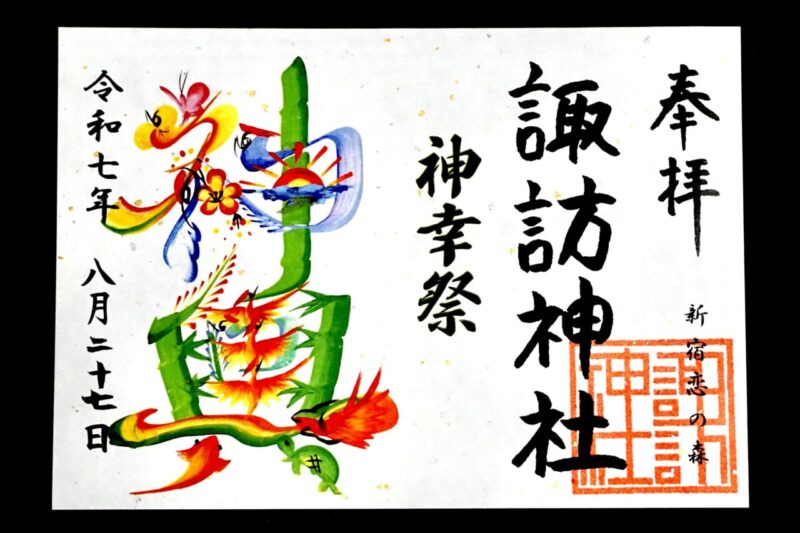 奉拝
新宿恋の森
諏訪
神社
諏訪神社
神幸祭
神輿
令和七年 八月二十七日